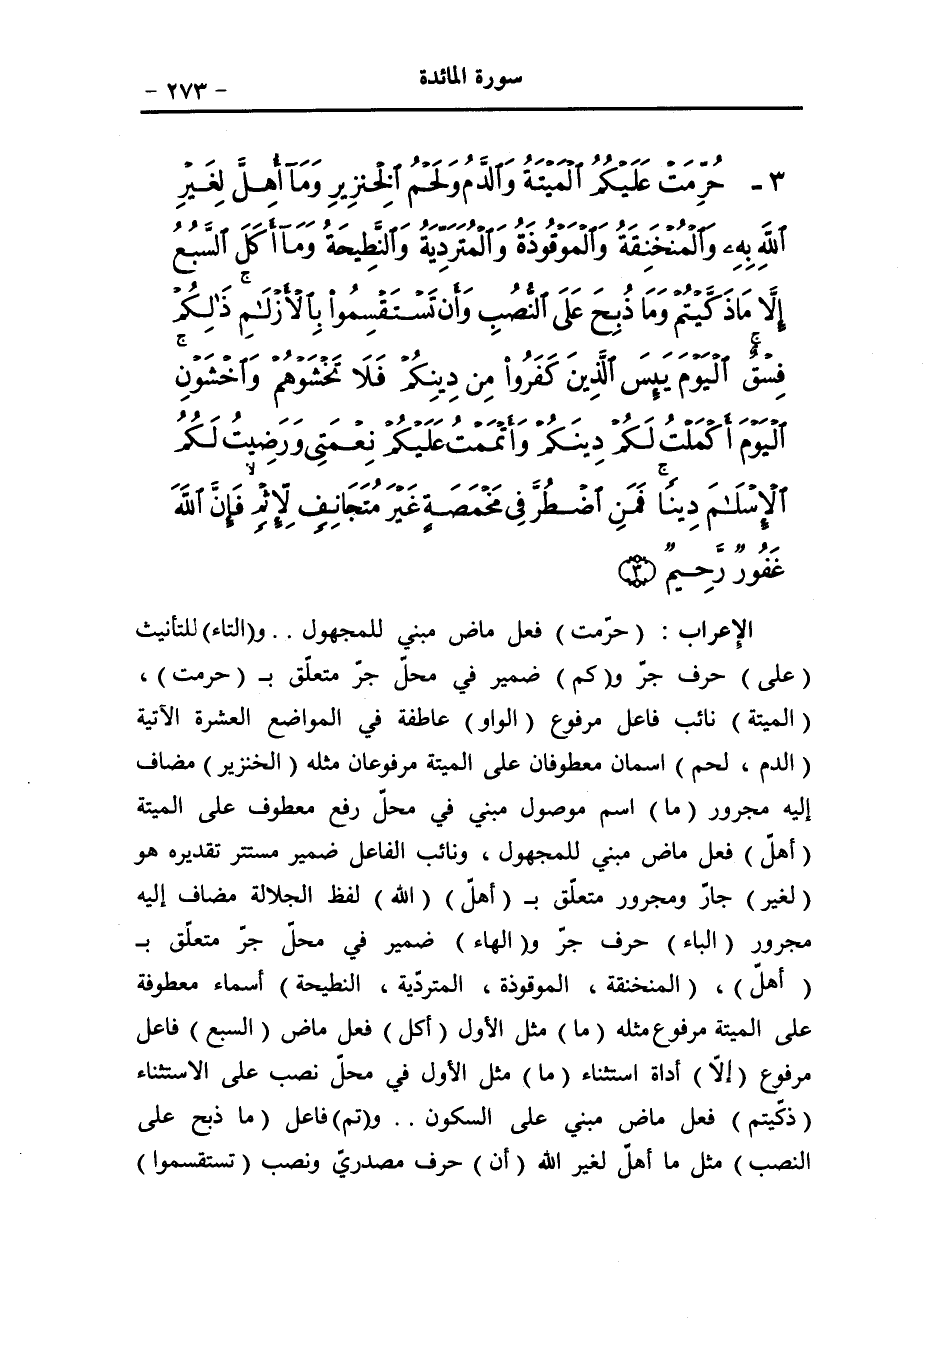 سورة المائدة
- ٢٧٣ -
٣ - حُرِّمَتْ عَلَيْكُمُ ٱلْمَيْتَةُ وَٱلدَّمُ وَلَحْمُ ٱلْخِنزِيرِ وَمَآ أُهِلَّ لِغَيْرِ
ٱللَّهِ بِهِۦ وَٱلْمُنْخَنِقَةُ وَٱلْمَوْقُوذَةُ وَٱلْمُتَرَدِّيَةُ وَٱلنَّطِيحَةُ وَمَآ أَكَلَ ٱلسَّبُعُ
إِلَّا مَا ذَكَّيْتُمْ وَمَا ذُبِحَ عَلَى ٱلنُّصُبِ وَأَن تَسْتَقْسِمُوا۟ بِٱلْأَزْلَـٰمِ ۚ ذَٰلِكُمْ
فِسْقٌ ۗ ٱلْيَوْمَ يَئِسَ ٱلَّذِينَ كَفَرُوا۟ مِن دِينِكُمْ فَلَا تَخْشَوْهُمْ وَٱخْشَوْنِ ۚ
ٱلْيَوْمَ أَكْمَلْتُ لَكُمْ دِينَكُمْ وَأَتْمَمْتُ عَلَيْكُمْ نِعْمَتِى وَرَضِيتُ لَكُمُ
ٱلْإِسْلَـٰمَ دِينًا ۚ فَمَنِ ٱضْطُرَّ فِى مَخْمَصَةٍ غَيْرَ مُتَجَانِفٍ لِّإِثْمٍ ۙ فَإِنَّ ٱللَّهَ
غَفُورٌ رَّحِيمٌ (٣)
الإعراب : ( حرّمت ) فعل ماض مبني للمجهول . . و(التاء) للتأنيث
( على ) حرف جرّ و( كم ) ضمير في محلّ جرّ متعلّق بـ ( حرمت ) ،
( الميتة ) نائب فاعل مرفوع ( الواو ) عاطفة في المواضع العشرة الآتية
( الدم ، لحم ) اسمان معطوفان على الميتة مرفوعان مثله ( الخنزير ) مضاف
إليه مجرور ( ما ) اسم موصول مبني في محلّ رفع معطوف على الميتة
( أهلّ ) فعل ماض مبني للمجهول ، ونائب الفاعل ضمير مستتر تقديره هو
( لغير ) جارّ ومجرور متعلّق بـ ( أهلّ ) ( الله ) لفظ الجلالة مضاف إليه
مجرور ( الباء ) حرف جرّ و( الهاء ) ضمير في محلّ جرّ متعلّق بـ
( أهلّ ) ، ( المنخنقة ، الموقوذة ، المتردّية ، النطيحة ) أسماء معطوفة
على الميتة مرفوع مثله ( ما ) مثل الأول ( أكل ) فعل ماض ( السبع ) فاعل
مرفوع ( إلّا ) أداة استثناء ( ما ) مثل الأول في محلّ نصب على الاستثناء
( ذكّيتم ) فعل ماض مبني على السكون . . و(تم) فاعل ( ما ذبح على
النصب ) مثل ما أهلّ لغير الله ( أن ) حرف مصدريّ ونصب ( تستقسموا )